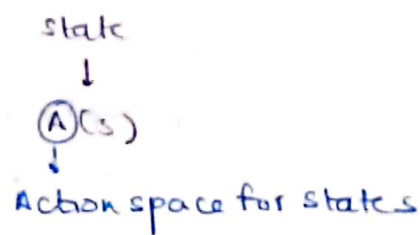 state
↓
A(s)
↓
Action space for state s